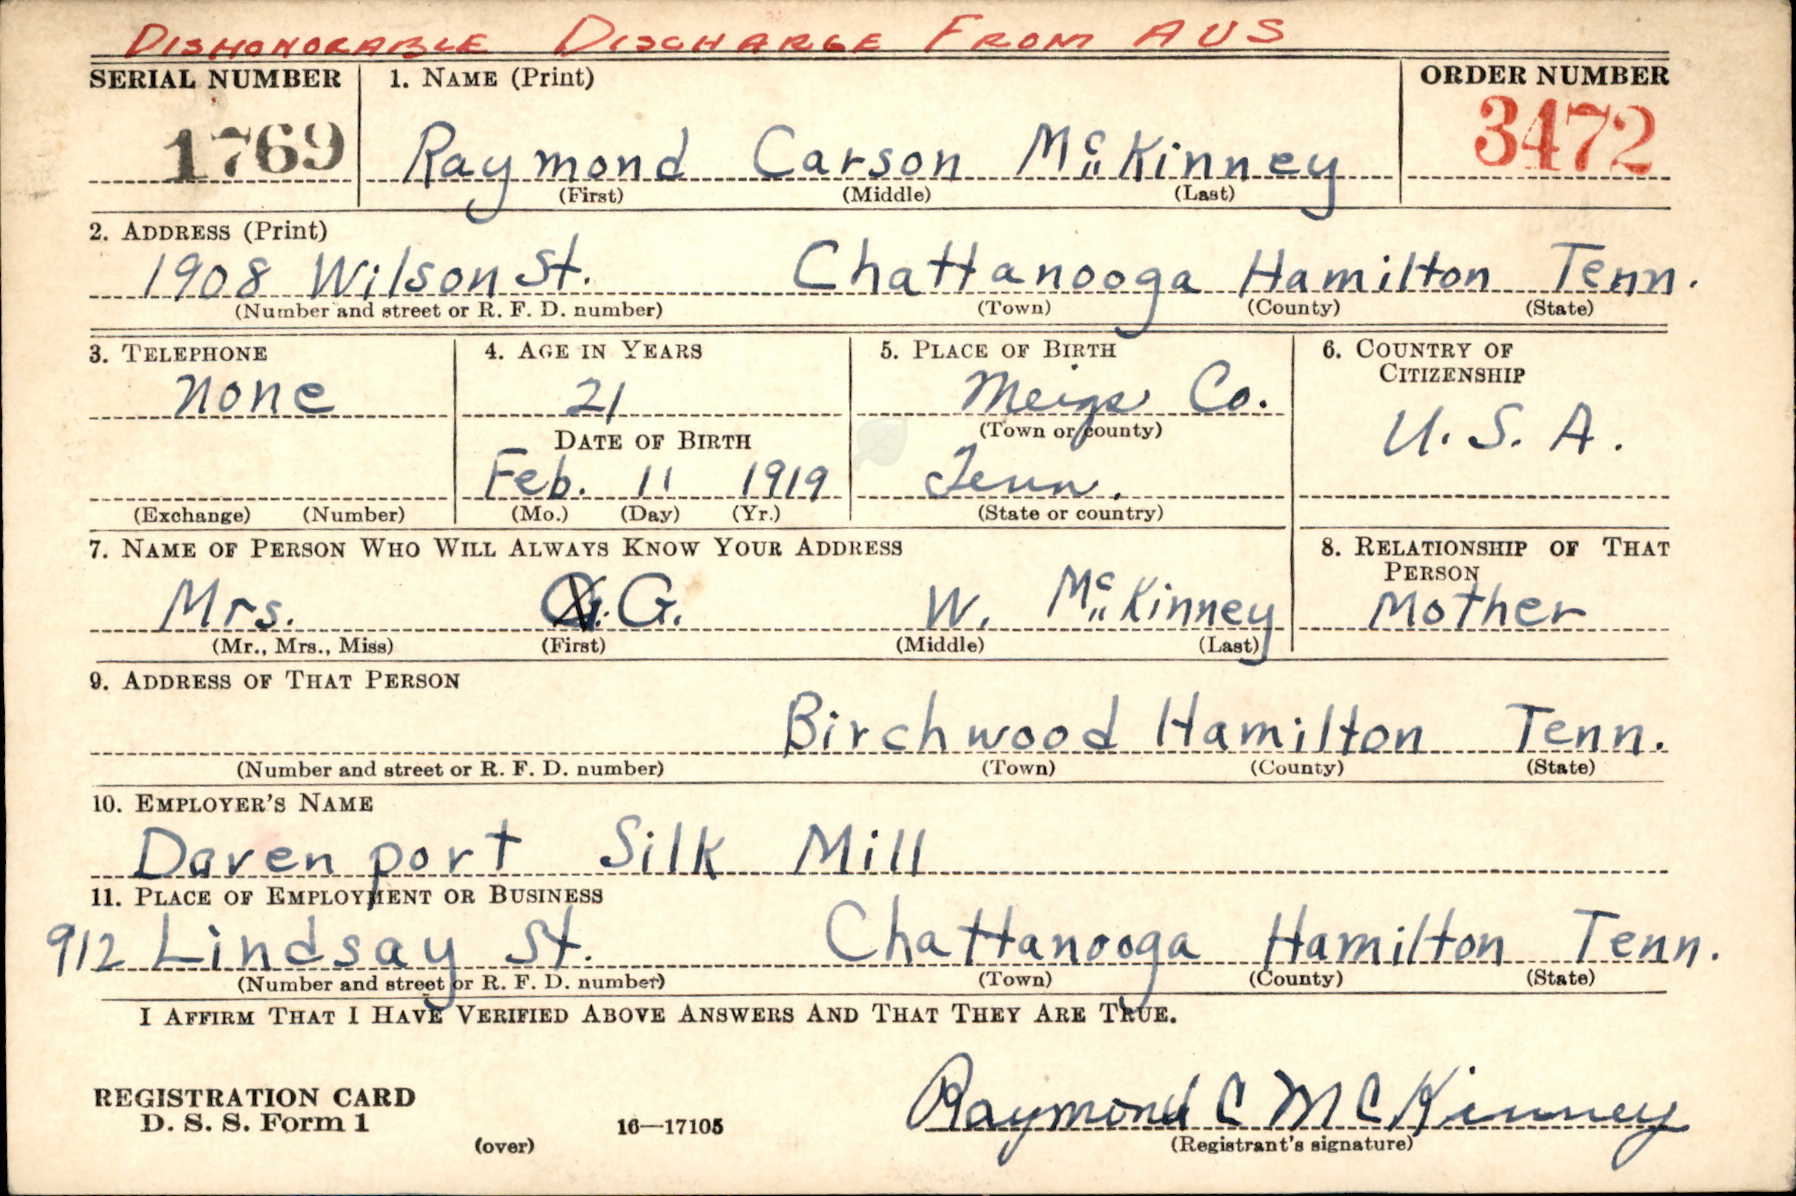 DISHONORABLE DISCHARGE FROM AUS
SERIAL NUMBER 1. NAME (Print) ORDER NUMBER
1769 Raymond Carson McKinney 3472
(First) (Middle) (Last)
2. ADDRESS (Print)
1908 Wilson St. Chattanooga Hamilton Tenn.
(Number and street or R. F. D. number) (Town) (County) (State)
3. TELEPHONE 4. AGE IN YEARS 5. PLACE OF BIRTH 6. COUNTRY OF CITIZENSHIP
None 21 Meigs Co. U. S. A.
DATE OF BIRTH (Town or county)
Feb. 11 1919 Tenn.
(Exchange) (Number) (Mo.) (Day) (Yr.) (State or country)
7. NAME OF PERSON WHO WILL ALWAYS KNOW YOUR ADDRESS 8. RELATIONSHIP OF THAT PERSON
Mrs. G. W. McKinney Mother
(Mr., Mrs., Miss) (First) (Middle) (Last)
9. ADDRESS OF THAT PERSON
Birchwood Hamilton Tenn.
(Number and street or R. F. D. number) (Town) (County) (State)
10. EMPLOYER'S NAME
Davenport Silk Mill
11. PLACE OF EMPLOYMENT OR BUSINESS
912 Lindsay St. Chattanooga Hamilton Tenn.
(Number and street or R. F. D. number) (Town) (County) (State)
I AFFIRM THAT I HAVE VERIFIED ABOVE ANSWERS AND THAT THEY ARE TRUE.
REGISTRATION CARD
D. S. S. Form 1 16—17105 Raymond C McKinney
(over) (Registrant's signature)